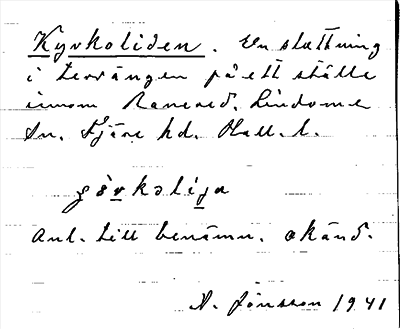 Kyrkoliden. En sluttning
i terrängen på ett ställe
inom Ranered. Lindome
Sn. Fjäre hd. Hall. l.
Anl. till benämn. okänd.
A. Jönsson 1941